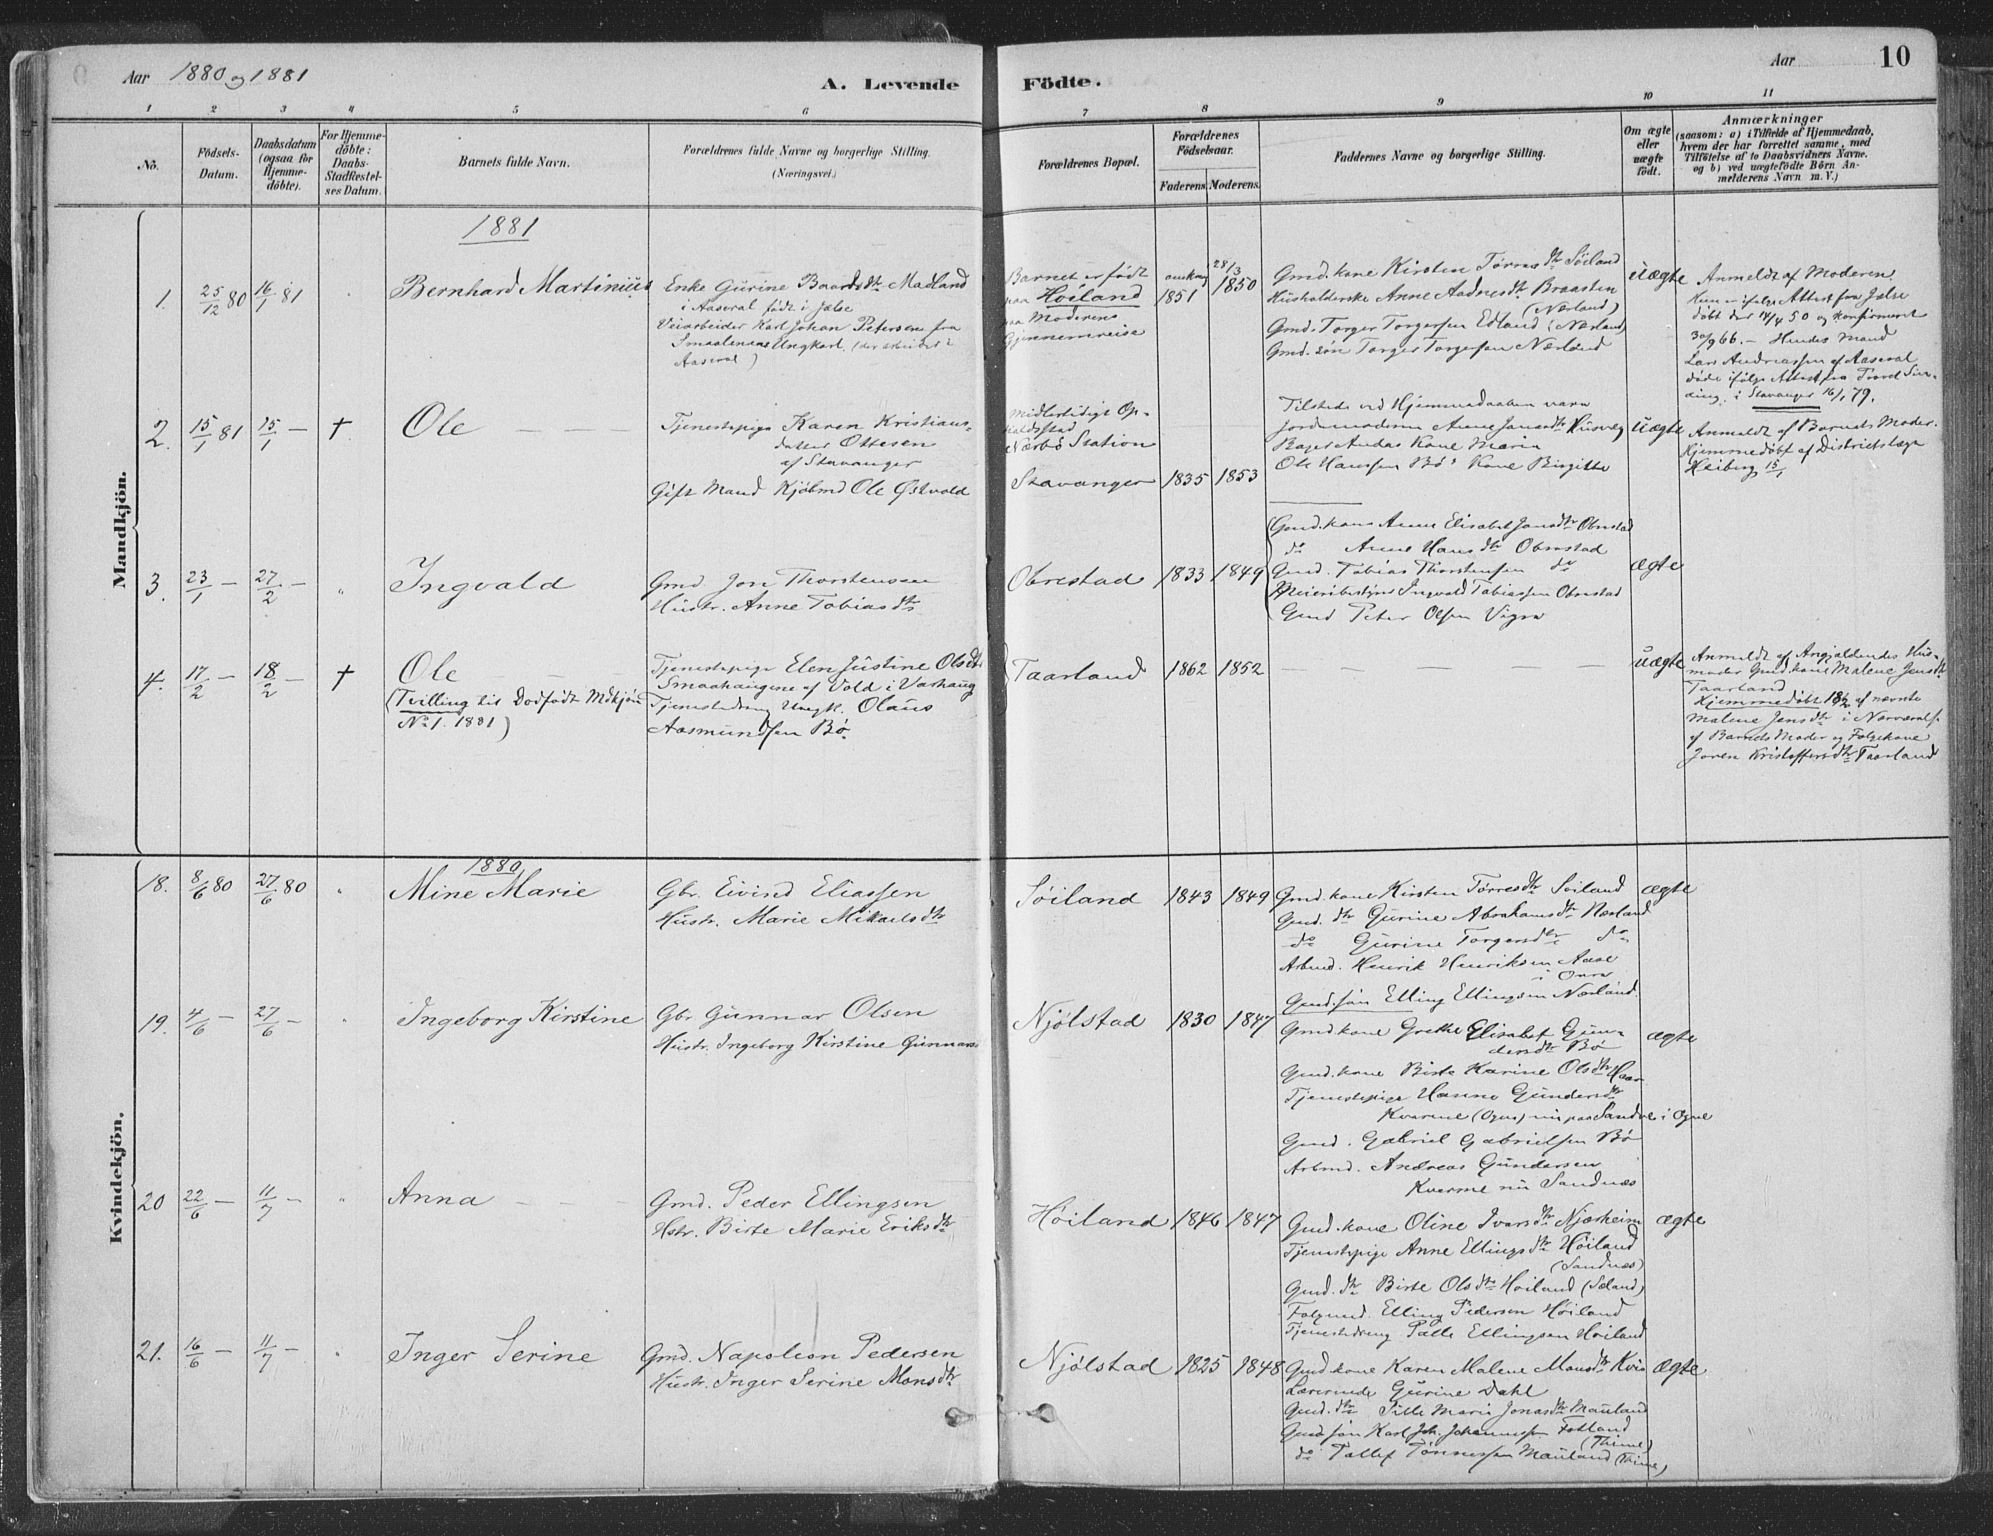 Aar 1880 og 1881
A. Levende Födte.
Aar
10
1 2 3 4 5 6 7 8 9 10 11
No.
Födsels-
Datum.
Daabsdatum
(ogsaa for
Hjemme-
döbte).
For Hjemme-
döbte:
Daabs-
Stadfestel-
ses Datum.
Barnets fulde Navn.
Forældrenes fulde Navne og borgerlige Stilling.
(Næringsvei.)
Forældrenes Bopæl.
Forældrenes
Födselsaar.
Faderens. Moderens.
Faddernes Navne og borgerlige Stilling.
Om ægte
eller
uægte
födt.
Anmærkninger
(saasom: a) i Tilfælde af Hjemmedaab,
hvem der har forrettet samme, med
Tilföielse af to Daabsvidners Navne.
og b) ved uægtefödte Börn An-
melderens Navn m. V.)
Mandkjön.
1881
1.
25/12 80
16/1 81
Bernhard Martinius
Enke Gurine Baardsdtr Madland
i Aaseral født i Jelse
Veiarbeider Karl Johan Petersen fra
Smaalenene Ungkarl (der arbeidet i
Aaseral)
Barnet er født
paa Høiland
paa Moderens
Gjennemreise
omkring
1851
28/3
1850
Gmd. kone Kirsten Tørresdtr Søiland
Husholderske Anne Aadnesdtr Braasten
(Nærland)
Gmd. Torger Torgersen Edland (Nærland)
Gmd. søn Torger Torgersen Nærland
uægte
Anmeldt af Moderen.
Hun er ifølge Attest fra Jelse
døbt den 14/4 50 og konfirmeret
30/9 66. – Hendes Mand
Lars Andreassen af Aaseral
døde ifølge Attest fra
i Stavanger 16/1 79.
2.
15/1 81
15/1 –
†
Ole
Tjenestepige Karen Kristians-
datter Ottesen
af Stavanger
Gift Mand Kjøbmd Ole Østvold
Midlertidigt Op-
holdssted
Nærbø Station
Stavanger
1835
1853
Tilstede ved Hjemmedaaben vare
Jordemoderen Anne Jonasdtr Husveg
Bager Andas Kone Maria
Ole Hanssen Bø's Kone Birgitte
uægte
Anmeldt af Barnets Moder.
Hjemmedøbt af Distriktslæge
Heiberg 15/1
3.
23/1 –
27/2 –
"
Ingvald
Gmd Jon Thorstensen
Hustr. Anne Tobiasdtr
Obrestad
1833
1849
Gmd. kone Anne Elisabet Jonsdtr Obrestad
do Anne Hansdtr Obrestad
Gmd. Tobias Thorstensen do
Meieribestyrer Ingvald Tobiassen Obrestad
Gmd Peter Olsen Vigre
ægte
4.
17/2 –
18/2 –
†
Ole
(Tvilling til Dødfødt Mdkjøn
No 1. 1881)
Tjenestepige Elen Justine Olsdtr
Smaahaugene af Vold i Varhaug
Tjenestedreng Ungk. Olaus
Aasmundsen Bø
Taarland
1862
1852
uægte
Anmeldt af Angjældendes Hus-
moder Gmd.kone Malene Jensdtr
Taarland
Hjemmedøbt 18/2 af nævnte
Malene Jensdtr i Nærværelse
af Barnets Moder og Følgekone
Joren Kristoffersdtr Taarland
Kvindekjön.
1880
18.
8/6 80
27/6 80
"
Mine Marie
Gbr. Eivind Eliassen
Hustr. Marie Mikaelsdtr
Søiland
1843
1849
Gmd.kone Kirsten Tørresdtr Søiland
Gmd. dtr Gurine Abrahamsdtr Nærland
do Gurine Torgersdtr do
Arbmd. Henrik Henriksen Aase
i Ogna
Gmd. søn Elling Ellingsen Nærland.
ægte
19.
4/6 –
27/6 –
"
Ingeborg Kirstine
Gbr Gunnar Olsen
Hustr. Ingeborg Kirstine Gunnars
Njølstad
1830
1847
Gmd kone Grethe Elisabet Gun-
dersdtr Bø
Gmd. kone Birte Karine Olsdtr Haar
Tjenestepige Hanne Gundersdtr
Kverme (Ogne) nu paa Sandve i Ogne
Gmd. Gabriel Gabrielsen Bø
Arbmd. Andreas Gundersen
Kverme nu Sandnæs
ægte
20
22/6 –
11/7 –
"
Anna
Gmd. Peder Ellingsen
Hstr. Birte Marie Eriksdtr
Høiland
1846
1847
Gmd. kone Oline Ivarsdtr Njærheim
Tjenestepige Anne Ellingsdtr Høiland
(Sandnæs)
Gmd. dtr Birte Olsdtr Høiland (Søland)
Følgmd. Elling Pedersen Høiland
Tjenestedreng Palle Ellingsen Høiland
ægte
21.
16/6 –
11/7 –
"
Inger Serine
Gmd. Napoleon Pedersen
Hustr. Inger Serine Monsdtr
Njølstad
1825
1848
Gmd kone Karen Malene Monsdtr Kvia
Lærerinde Gurine Dahl
Gmd. dtr Sille Marie Jonasdtr Mauland
Gmd søn Karl Joh. Johannessen Fotland
(Thime)
do Tallef Tønnessen Mauland (Thime)
ægte